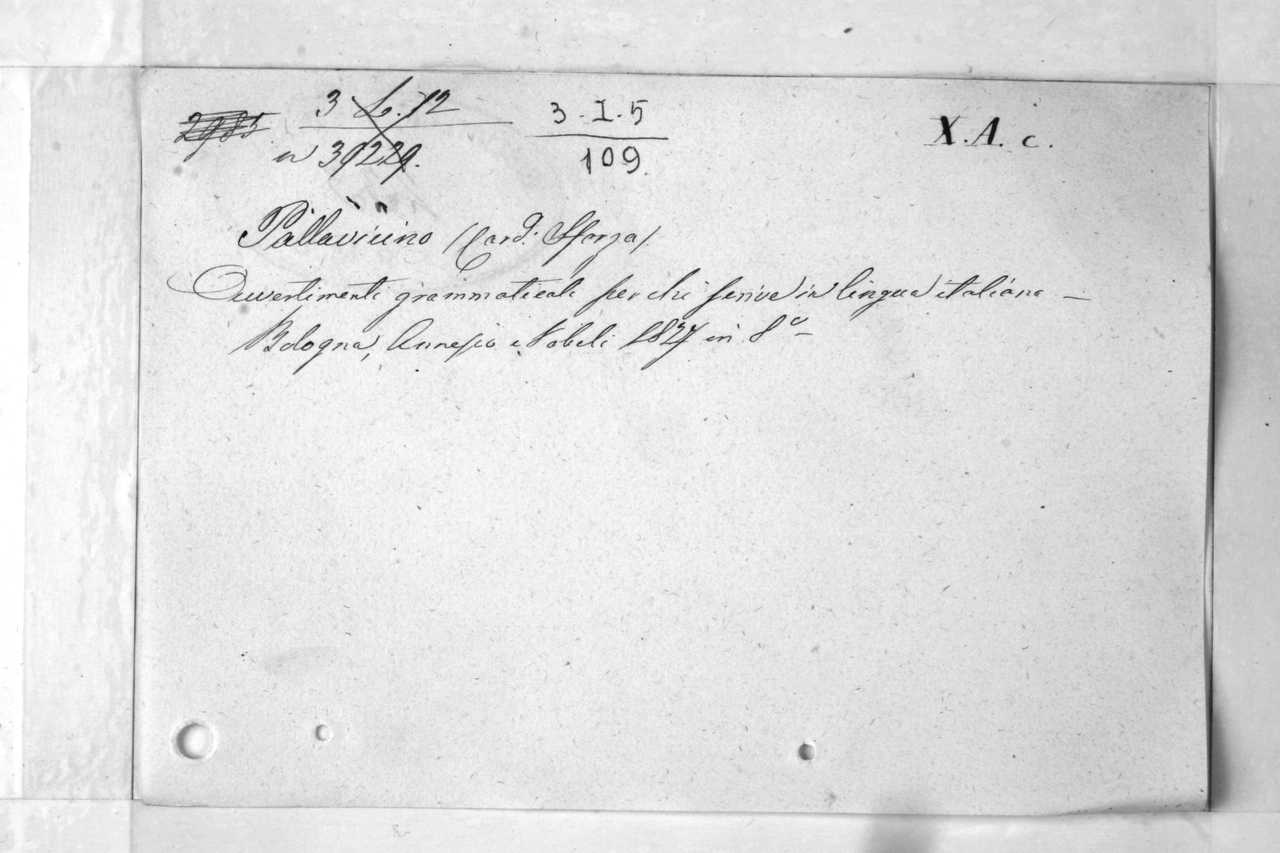 3 L. 12 3-I-5 X.A. c.
n 39229. 109.
Pallavicino (Card. Sforza)
Divertimenti grammaticali per chi scrive in lingua italiana —
Bologna, Annesio Nobili 1827 in 8°